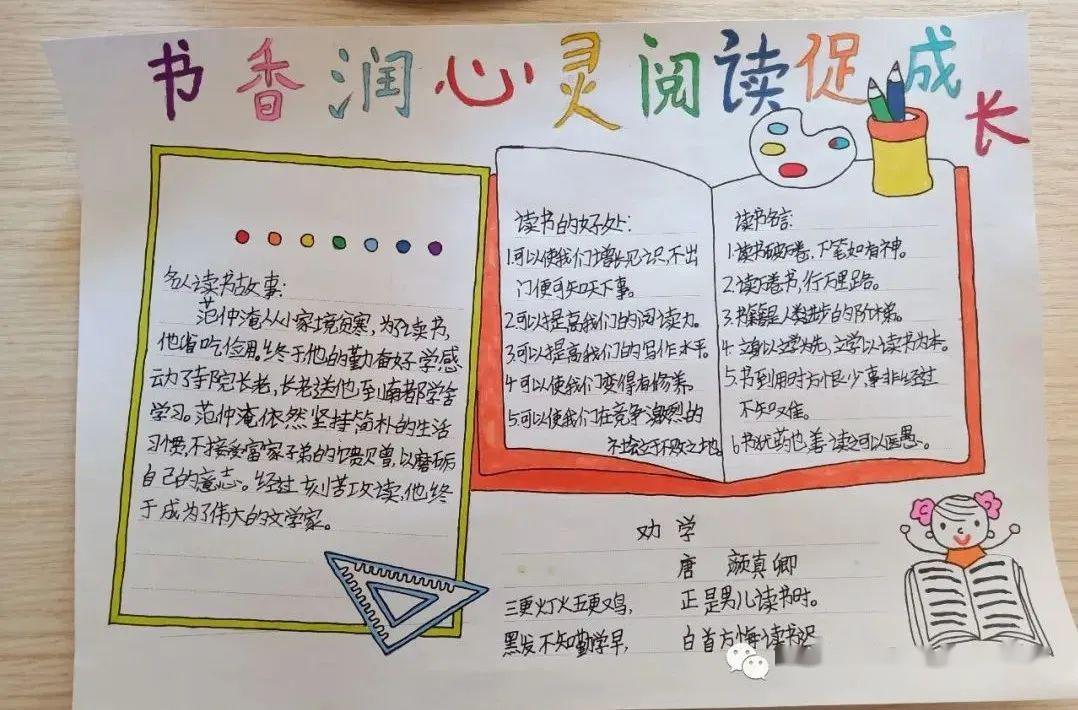 书香润心灵阅读促成长
名人读书故事:
范仲淹从小家境贫寒,为了读书,
他省吃俭用。终于他的勤奋好学感
动了寺院长老,长老送他到南都学舍
学习。范仲淹依然坚持简朴的生活
习惯,不接受富家子弟的馈赠,以磨砺
自己的意志。经过刻苦攻读,他终
于成为了伟大的文学家。
读书的好处:
1.可以使我们增长见识,不出
门便可知天下事。
2.可以提高我们的阅读力。
3.可以提高我们的写作水平。
4.可以使我们变得有修养。
5.可以使我们在竞争激烈的
社会立于不败之地。
读书名言:
1.读书破万卷,下笔如有神。
2.读万卷书,行万里路。
3.书籍是人类进步的阶梯。
4.立身以立学为先,立学以读书为本。
5.书到用时方恨少,事非经过
不知难。
6.书犹药也,善读之可以医愚。
劝学
唐 颜真卿
三更灯火五更鸡, 正是男儿读书时。
黑发不知勤学早, 白首方悔读书迟